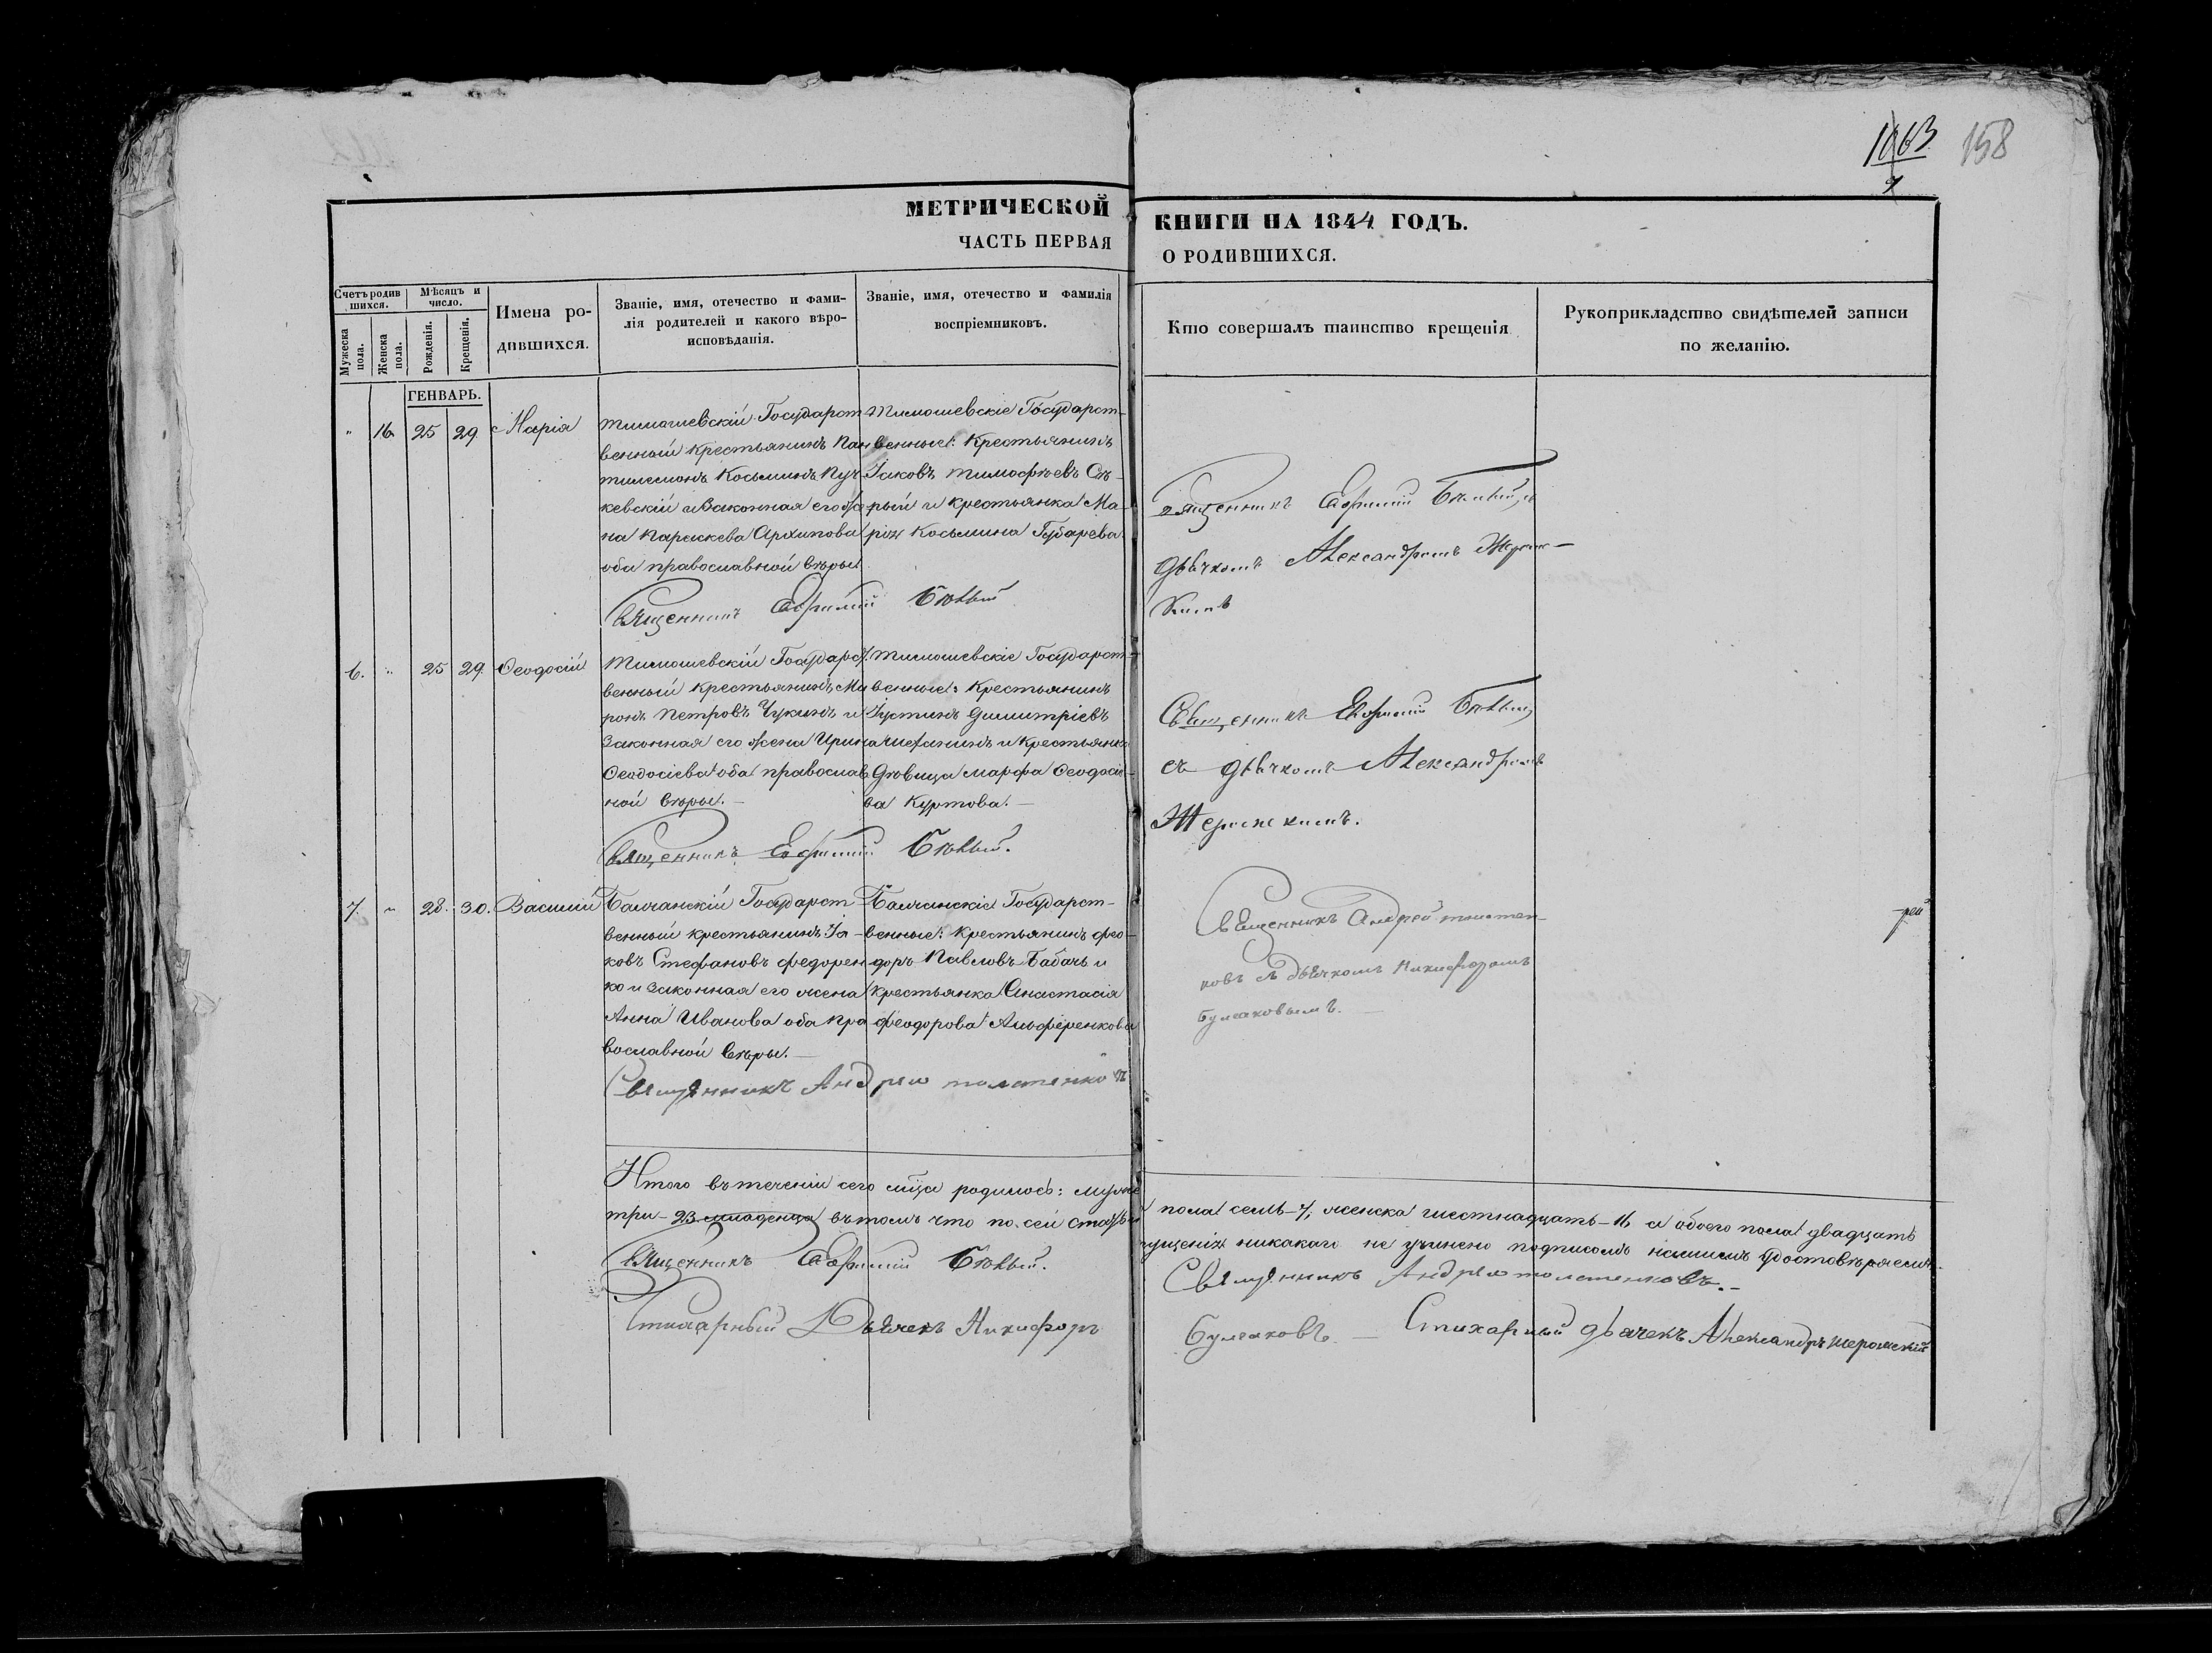 1063 158
7
МЕТРИЧЕСКОЙ КНИГИ НА 1844 ГОДЪ.
ЧАСТЬ ПЕРВАЯ О РОДИВШИХСЯ.
Счетъ родив
шихся.
Мужеска
пола.
Женска
пола.
Мѣсяцъ и
число.
Рожденія.
Крещенія.
Имена ро-
дившихся.
Званіе, имя, отечество и фами-
лія родителей и какого вѣро-
исповѣданія.
Званіе, имя, отечество и фамилія
воспріемниковъ.
Кто совершалъ таинство крещенія
Рукоприкладство свидѣтелей записи
по желанію.
ГЕНВАРЬ.
" 16 25 29 Марія
Тимошевскій Государст
венный крестьянинъ Пан
тилемонъ Косьминъ Пуч
ковскій и Законная его же
на Параскева Архипова
оба православной вѣры
Священникъ Евфимій Бѣлый
Тимошевскіе Государст-
венные: Крестьянинъ
Іаковъ Тимофѣевъ Сѣ-
рый и крестьянка Ма-
рія Косьмина Губарева
Священникъ Евфимій Бѣлый съ
дьячкомъ Александромъ
6. " 25 29. Феодосій
Тимошевскій Государст.
венный крестьянинъ Ми
ронъ Петровъ Чукинъ и
Законная его жена Ирина
Феодосіева оба православ
ной вѣры.
Священникъ Евфимій Бѣлый.
Тимошевскіе Государст-
венные: Крестьянинъ
Іустинъ Димитріевъ
и крестьянка
Дѣвица Марфа Феодосіе-
ва Куртова.
Священникъ Евфимій Бѣлый
съ дьячкомъ Александромъ
7. " 28. 30. Василій
Балчанскій Государст
венный крестьянинъ Іа-
ковъ Стефановъ Федорен
ко и законная его жена
Анна Иванова оба пра
вославной вѣры.
Священникъ Андрей
Балчанскіе Государст-
венные: Крестьянинъ Фео-
доръ Павловъ Бабачь и
крестьянка Анастасія
Феодорова Альференкова
Священникъ Андрей
съ дьячкомъ Никифоромъ
Булгаковымъ.
рей
Итого въ теченіи сего мѣца родилось: муже пола семь-7, женска шестнадцать-16 а обоего пола двадцать
три-23 младенца въ томъ что по сей никакаго не учинено подписомъ нашимъ удостовѣряемъ.
Священникъ Евфимій Бѣлый. Священникъ Андрей
Стихарный Дьячекъ Никифоръ Булгаковъ. Стихарный дьячекъ Александръ